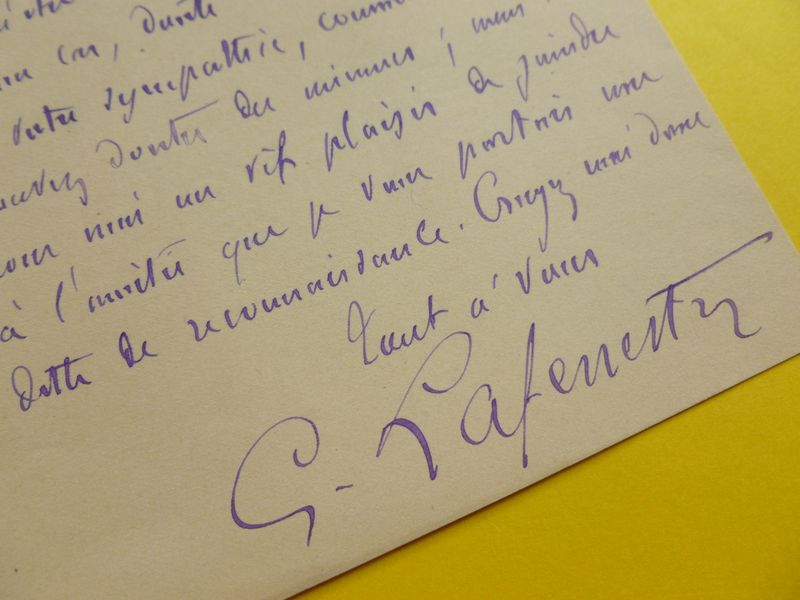 cru, doute
votre sympathie, comme
douter des miennes ; mais
pour moi un vif plaisir de joindre
à l'amitié que je vous portais une
dette de reconnaissance. Croyez moi donc
tout à vous
G. Lafenestre